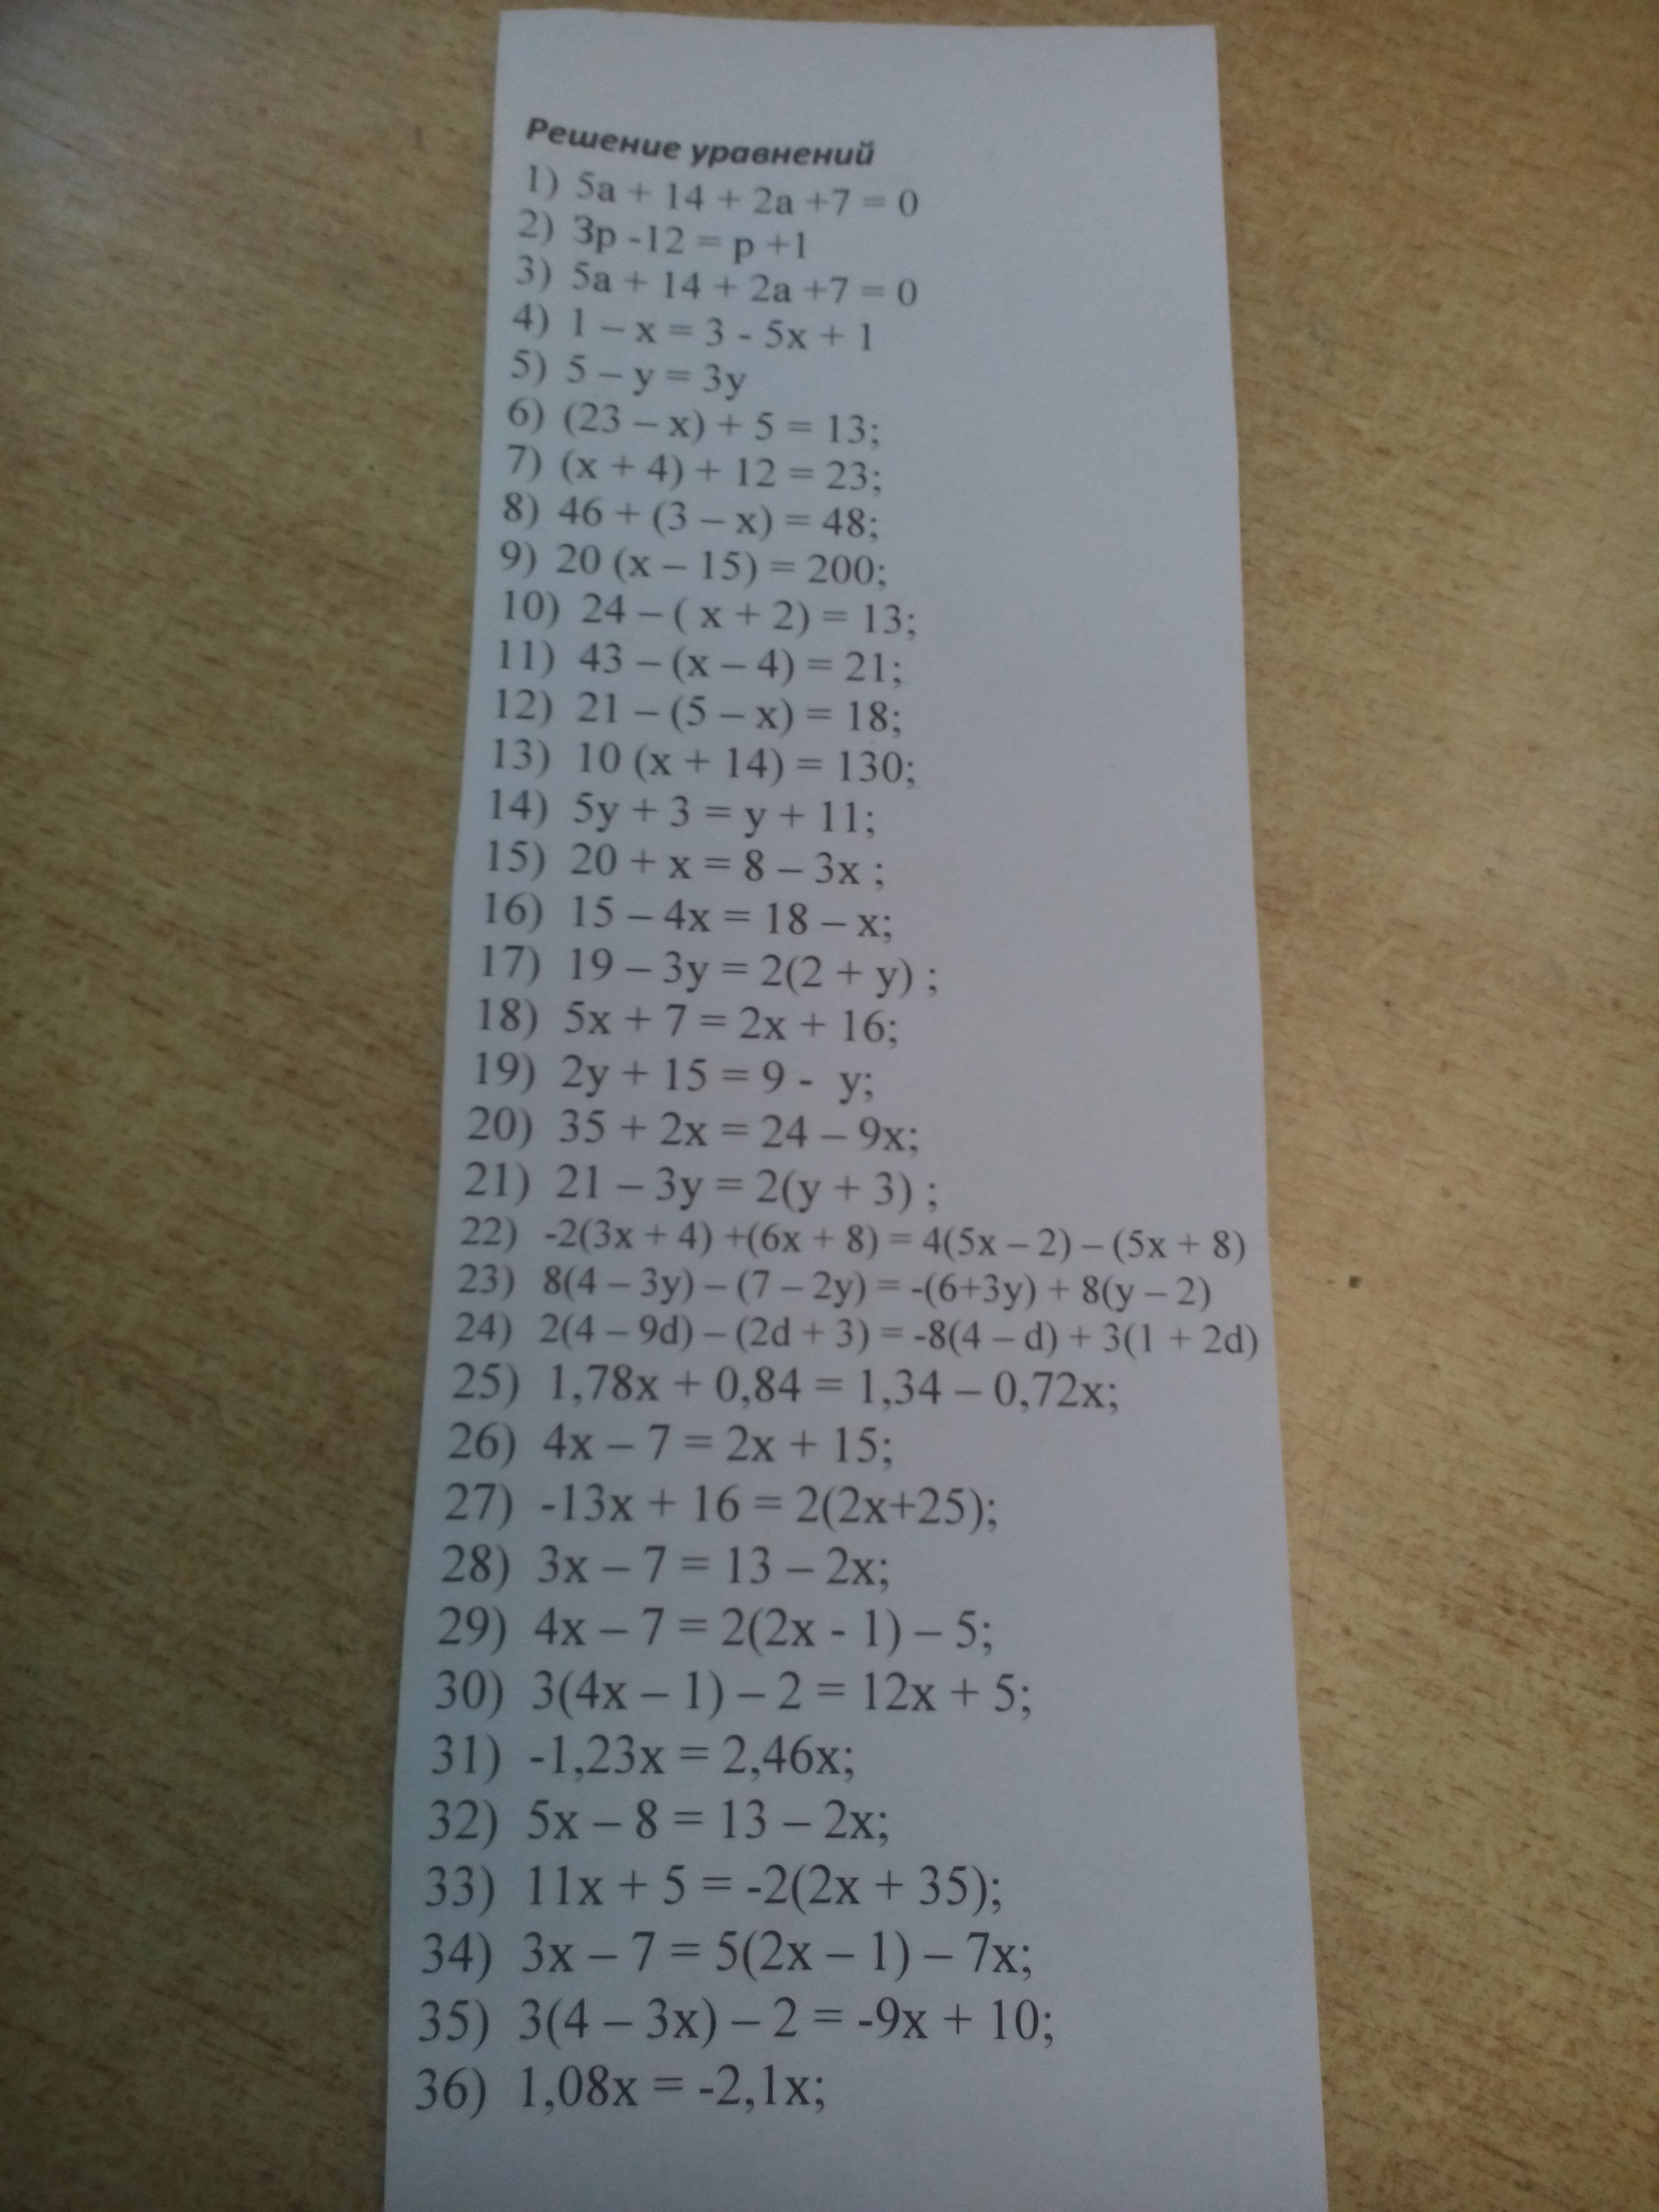 Решение уравнений
1) 5a + 14 + 2a +7 = 0
2) 3p -12 = p +1
3) 5a + 14 + 2a +7 = 0
4) 1 – x = 3 - 5x + 1
5) 5 – y = 3y
6) (23 – x) + 5 = 13;
7) (x + 4) + 12 = 23;
8) 46 + (3 – x) = 48;
9) 20 (x – 15) = 200;
10) 24 – ( x + 2) = 13;
11) 43 – (x – 4) = 21;
12) 21 – (5 – x) = 18;
13) 10 (x + 14) = 130;
14) 5y + 3 = y + 11;
15) 20 + x = 8 – 3x ;
16) 15 – 4x = 18 – x;
17) 19 – 3y = 2(2 + y) ;
18) 5x + 7 = 2x + 16;
19) 2y + 15 = 9 - y;
20) 35 + 2x = 24 – 9x;
21) 21 – 3y = 2(y + 3) ;
22) -2(3x + 4) +(6x + 8) = 4(5x – 2) – (5x + 8)
23) 8(4 – 3y) – (7 – 2y) = -(6+3y) + 8(y – 2)
24) 2(4 – 9d) – (2d + 3) = -8(4 – d) + 3(1 + 2d)
25) 1,78x + 0,84 = 1,34 – 0,72x;
26) 4x – 7 = 2x + 15;
27) -13x + 16 = 2(2x+25);
28) 3x – 7 = 13 – 2x;
29) 4x – 7 = 2(2x - 1) – 5;
30) 3(4x – 1) – 2 = 12x + 5;
31) -1,23x = 2,46x;
32) 5x – 8 = 13 – 2x;
33) 11x + 5 = -2(2x + 35);
34) 3x – 7 = 5(2x – 1) – 7x;
35) 3(4 – 3x) – 2 = -9x + 10;
36) 1,08x = -2,1x;